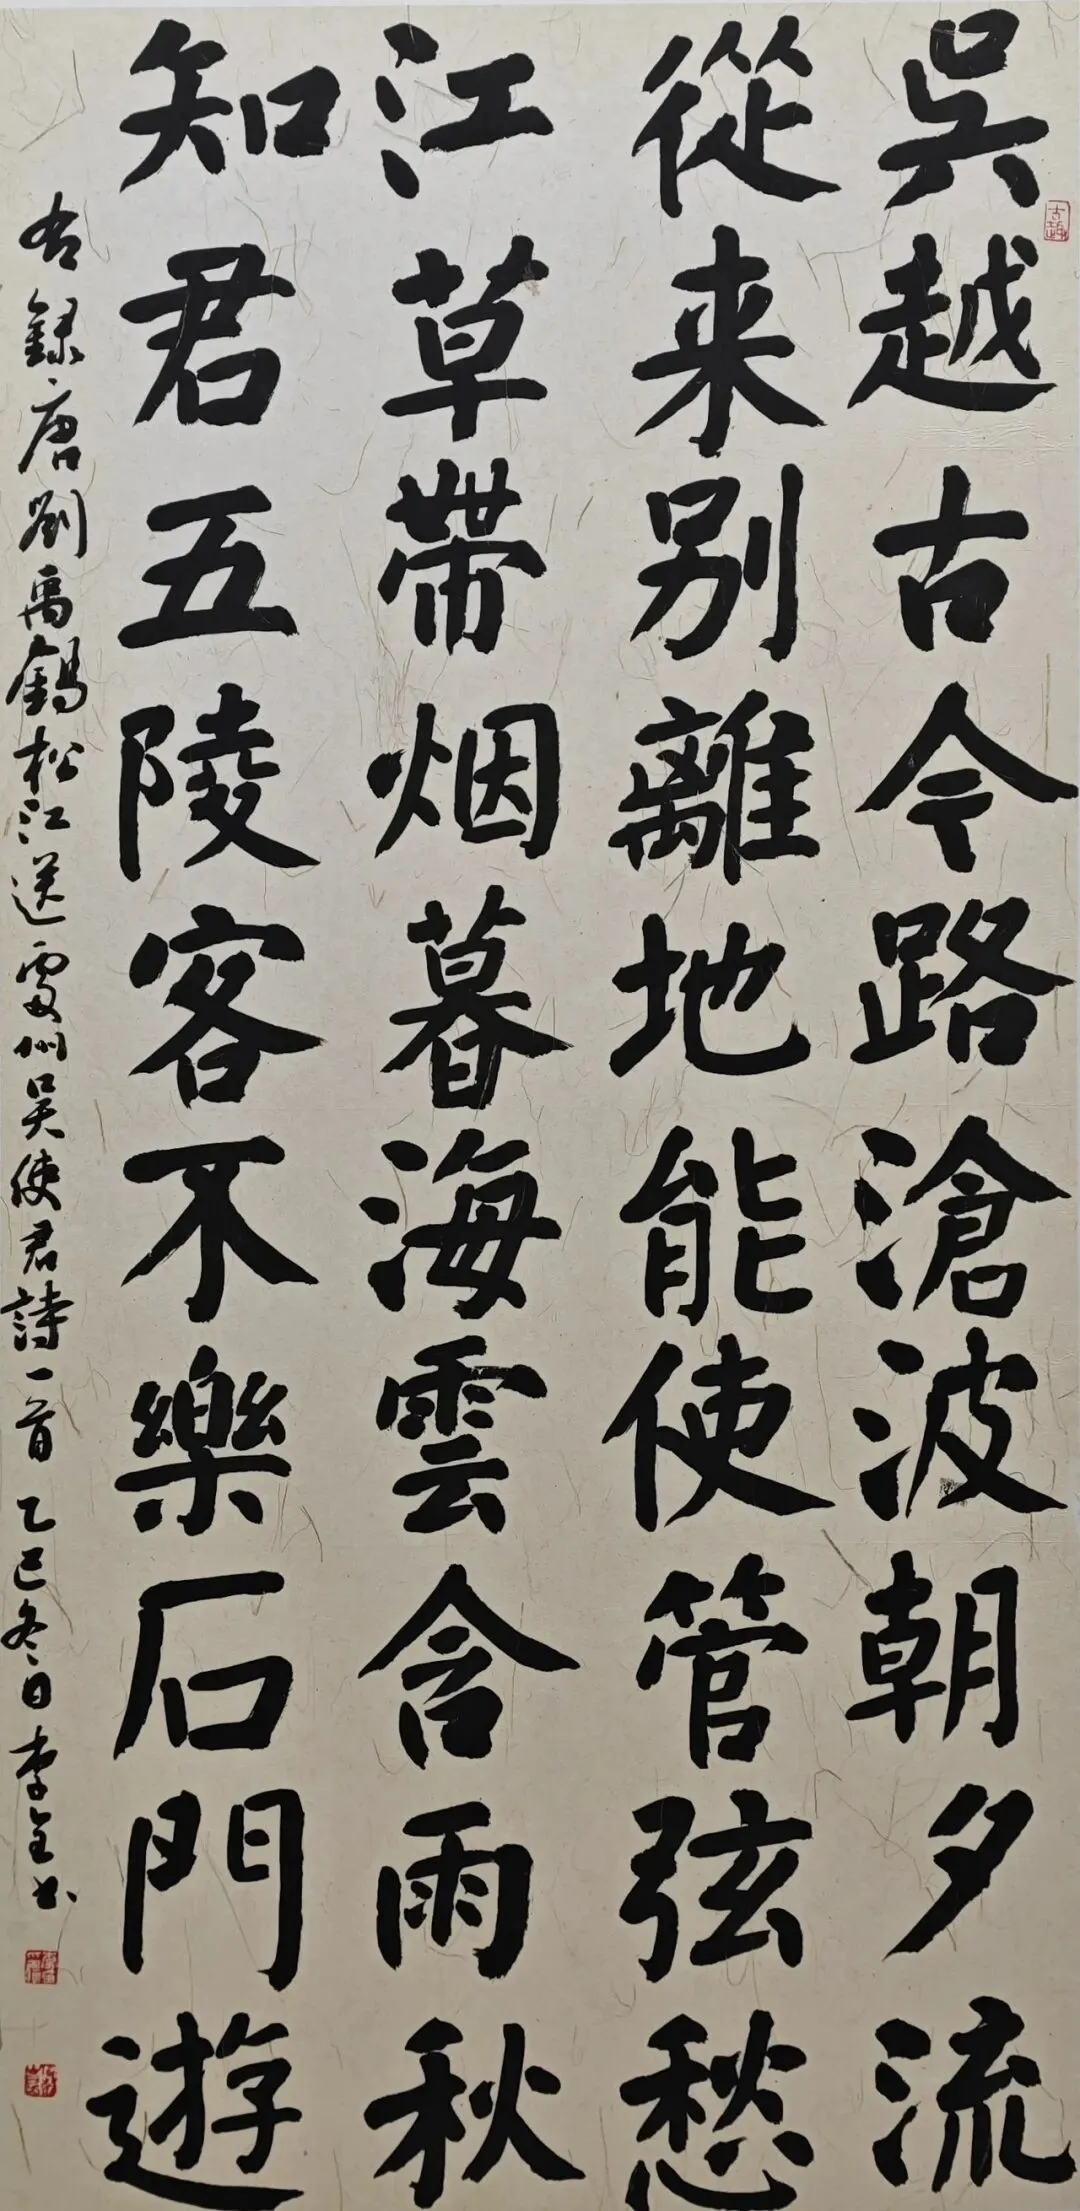 吳越古今路滄波朝夕流
從来别離地能使管弦愁
江草帶烟暮海雲含雨秋
知君五陵客不樂石門遊
右録唐劉禹錫松江送處州吴使君詩一首乙巳冬日李全书